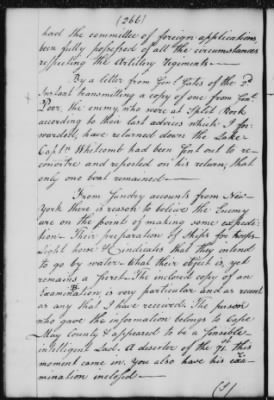 (266)
had the committee of foreign applications
been fully possessed of all the circumstances
respecting the Artillery Regiments —
By a letter from Genl. Gates of the 2d
Instant transmitting a copy of one from Genl.
Poor, the enemy who were at Split Rock
according to their last advices which I for-
warded, have returned down the Lake
Captn. Whitcomb had been sent out to re-
connoitre and reported on his return, that
only one boat remained —
From Sundry accounts from New-
York there is reason to believe the Enemy
are on the point of making some expedi-
tion. Their preparation of Ships for troops
Light horse & indicates that they intend
to go by water. What their object is, yet
remains a Secret. The inclosed copy of an
Examination is very particular and as recent
as any that I have received. The person
who gave the information belongs to Cape
May County & appeared to be a sensible
intelligent Lad. A deserter of the 71st this
moment came in. You also have his exa-
mination inclosed —